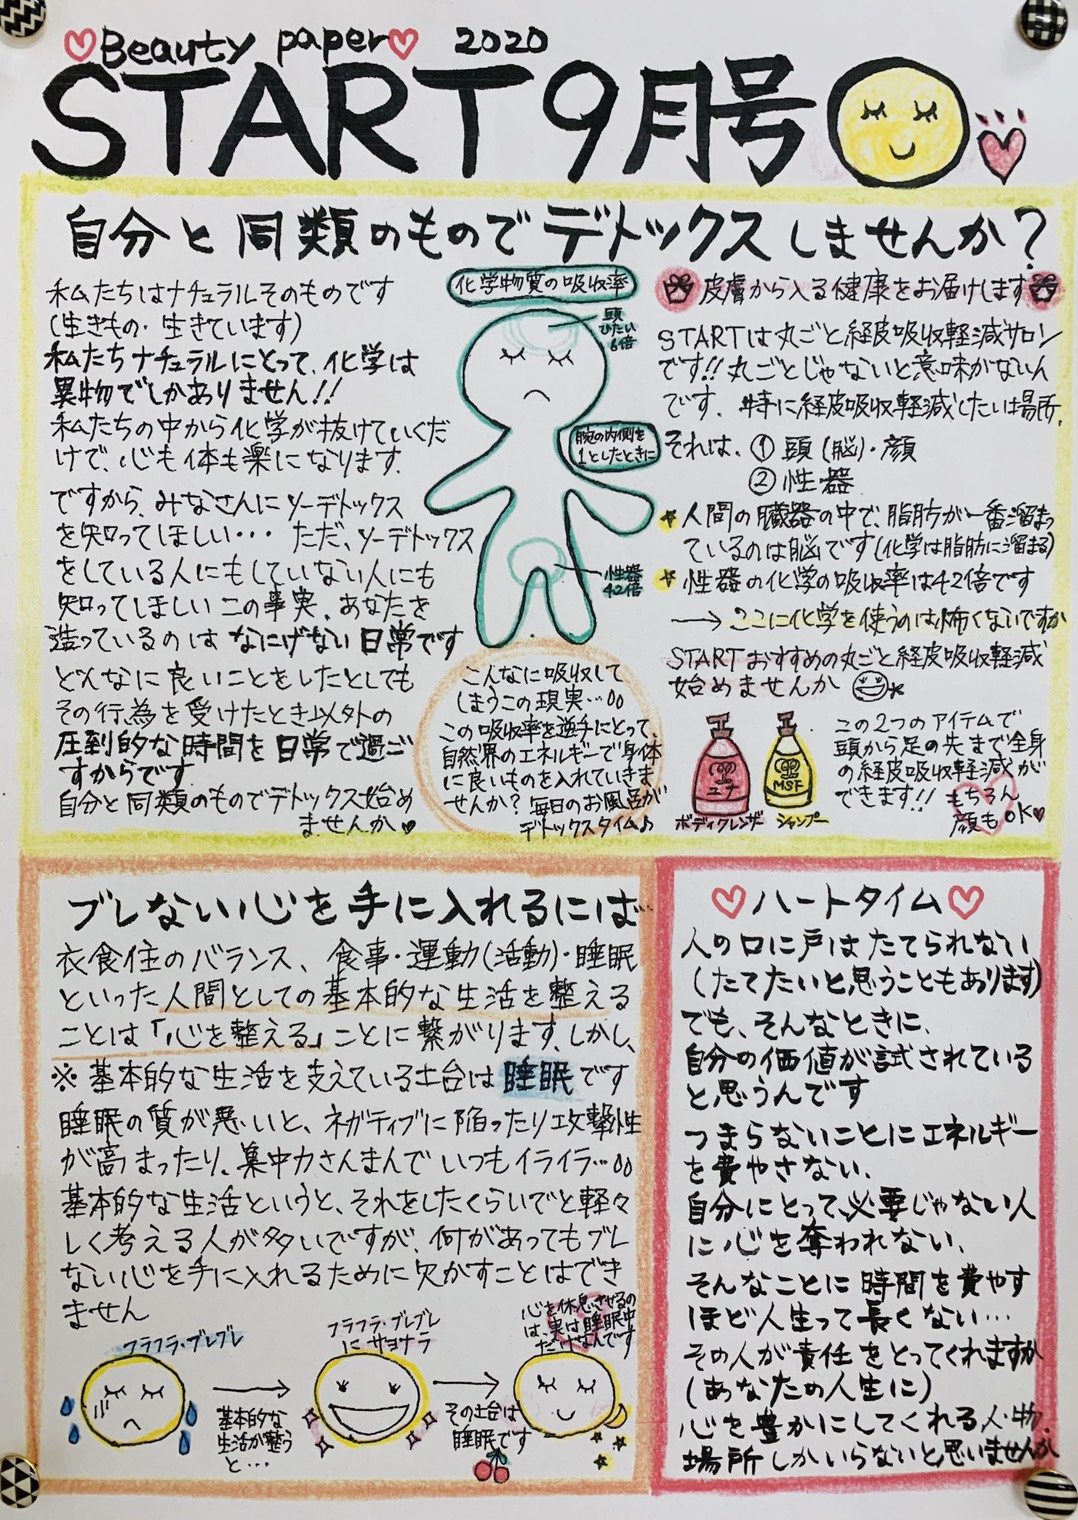 ♡Beauty paper♡ 2020
START 9月号
自分と同類のものでデトックスしませんか?
私たちはナチュラルそのものです
(生きもの・生きています)
私たちナチュラルにとって、化学は
異物でしかありません!!
私たちの中から化学が抜けていくだ
けで、心も体も楽になります。
ですから、みなさんにソーデトックス
を知ってほしい… ただ、ソーデトックス
をしている人にもしていない人にも
知ってほしいこの事実、あなたを
造っているのはなにげない日常です
どんなに良いことをしたとしても
その行為を受けたとき以外の
圧到的な時間を日常で過ご
すからです
自分と同類のものでデトックス始め
ませんか♥
化学物質の吸収率
頭
ひたい
6倍
腕の内側を
1としたときに
性器
42倍
こんなに吸収して
しまうこの現実…
この吸収率を逆手にとって、
自然界のエネルギーで身体
に良いものを入れていきま
せんか? 毎日のお風呂が
デトックスタイム♪
皮膚から入る健康をお届けします
STARTは丸ごと経皮吸収軽減サロン
です!! 丸ごとじゃないと意味がないん
です。特に経皮吸収軽減したい場所、
それは、① 頭(脳)・顔
② 性器
★人間の臓器の中で、脂肪が一番溜まっ
ているのは脳です(化学は脂肪に溜まる)
★性器の化学の吸収率は42倍です
→ここに化学を使うのは怖くないですか
STARTおすすめの丸ごと経皮吸収軽減
始めませんか
ユナ
MSF
ボディクレンザ
シャンプー
この2つのアイテムで
頭から足の先まで全身
の経皮吸収軽減が
できます!! もちろん
顔もOK♥
ブレない心を手に入れるには…
衣食住のバランス、食事・運動(活動)・睡眠
といった人間としての基本的な生活を整える
ことは「心を整える」ことに繋がります。しかし、
※基本的な生活を支えている土台は睡眠です
睡眠の質が悪いと、ネガティブに陥ったり攻撃性
が高まったり、集中力さんまんでいつもイライラ…
基本的な生活というと、それをしたくらいでと軽々
しく考える人が多いですが、何があってもブレ
ない心を手に入れるために欠かすことはでき
ません
フラフラ・ブレブレ
→
基本的な
生活が整う
と…
フラフラ・ブレブレ
にサヨナラ
→
その土台は
睡眠です
心を休息させるの
は、実は睡眠中
だけなんです
♡ハートタイム♡
人の口に戸はたてられない
(たてたいと思うこともあります)
でも、そんなときに、
自分の価値が試されている
と思うんです
つまらないことにエネルギー
を費やさない、
自分にとって必要じゃない人
に心を奪われない、
そんなことに時間を費やす
ほど人生って長くない…
その人が責任をとってくれますか
(あなたの人生に)
心を豊かにしてくれる人・物・
場所しかいらないと思いませんか